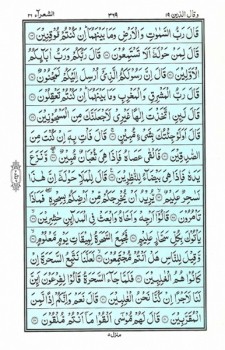 وقال الذين ١٩ ٣٦٩ الشعرآء ٢٦
قَالَ رَبُّ السَّمٰوٰتِ وَالْاَرْضِ وَمَا بَيْنَهُمَا اِنْ كُنْتُمْ مُّوْقِنِيْنَ
قَالَ لِمَنْ حَوْلَهٗٓ اَلَا تَسْتَمِعُوْنَ قَالَ رَبُّكُمْ وَرَبُّ اٰبَآئِكُمُ
الْاَوَّلِيْنَ قَالَ اِنَّ رَسُوْلَكُمُ الَّذِيْٓ اُرْسِلَ اِلَيْكُمْ لَمَجْنُوْنٌ
قَالَ رَبُّ الْمَشْرِقِ وَالْمَغْرِبِ وَمَا بَيْنَهُمَا اِنْ كُنْتُمْ تَعْقِلُوْنَ
قَالَ لَئِنِ اتَّخَذْتَ اِلٰهًا غَيْرِيْ لَاَجْعَلَنَّكَ مِنَ الْمَسْجُوْنِيْنَ
قَالَ اَوَلَوْ جِئْتُكَ بِشَيْءٍ مُّبِيْنٍ قَالَ فَاْتِ بِهٖٓ اِنْ كُنْتَ مِنَ
الصّٰدِقِيْنَ فَاَلْقٰى عَصَاهُ فَاِذَا هِيَ ثُعْبَانٌ مُّبِيْنٌ وَّنَزَعَ
يَدَهٗ فَاِذَا هِيَ بَيْضَآءُ لِلنّٰظِرِيْنَ قَالَ لِلْمَلَاِ حَوْلَهٗٓ اِنَّ هٰذَا
لَسٰحِرٌ عَلِيْمٌ يُّرِيْدُ اَنْ يُّخْرِجَكُمْ مِّنْ اَرْضِكُمْ بِسِحْرِهٖ فَمَاذَا
تَاْمُرُوْنَ قَالُوْٓا اَرْجِهْ وَاَخَاهُ وَابْعَثْ فِي الْمَدَآئِنِ حٰشِرِيْنَ
يَاْتُوْكَ بِكُلِّ سَحَّارٍ عَلِيْمٍ فَجُمِعَ السَّحَرَةُ لِمِيْقَاتِ يَوْمٍ مَّعْلُوْمٍ
وَّقِيْلَ لِلنَّاسِ هَلْ اَنْتُمْ مُّجْتَمِعُوْنَ لَعَلَّنَا نَتَّبِعُ السَّحَرَةَ اِنْ
كَانُوْا هُمُ الْغٰلِبِيْنَ فَلَمَّا جَآءَ السَّحَرَةُ قَالُوْا لِفِرْعَوْنَ اَئِنَّ
لَنَا لَاَجْرًا اِنْ كُنَّا نَحْنُ الْغٰلِبِيْنَ قَالَ نَعَمْ وَاِنَّكُمْ اِذًا لَّمِنَ
الْمُقَرَّبِيْنَ قَالَ لَهُمْ مُّوْسٰٓى اَلْقُوْا مَآ اَنْتُمْ مُّلْقُوْنَ